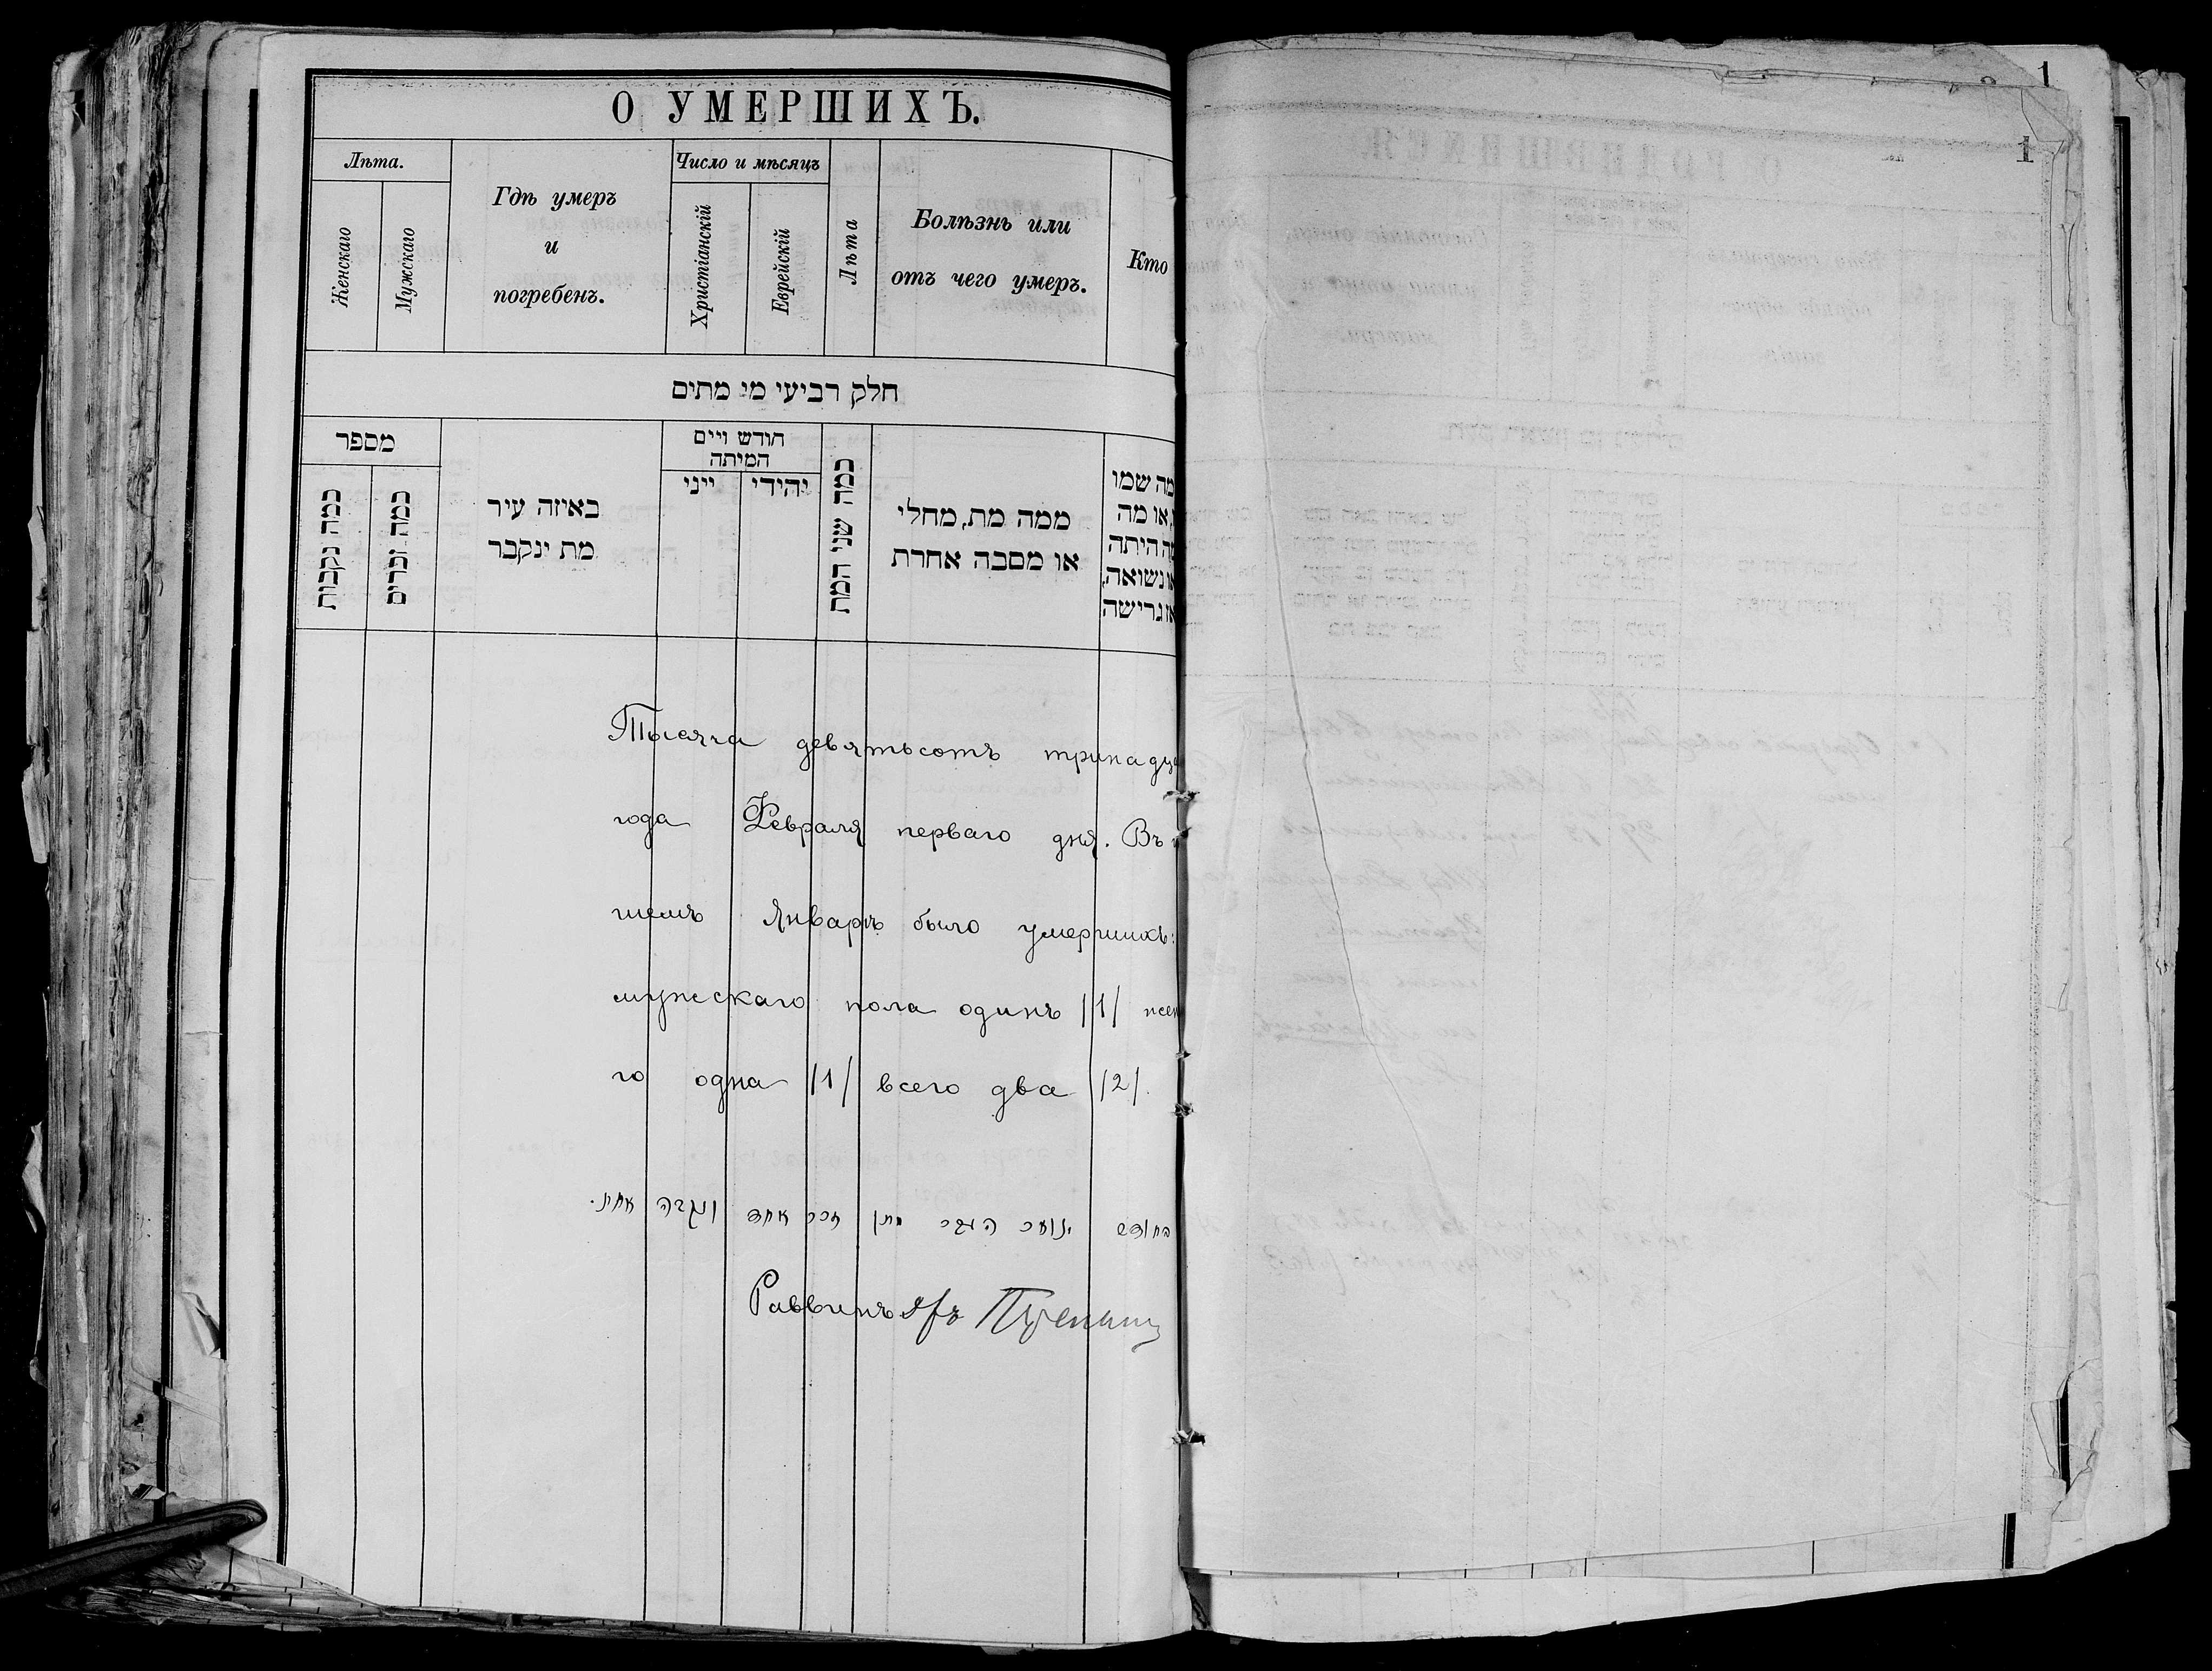 О УМЕРШИХЪ.
Лѣта.
Женскаго
Мужскаго
Гдѣ умеръ
и
погребенъ.
Число и мѣсяцъ
Христіанскій
Еврейскій
Лѣта
Болѣзнь или
отъ чего умеръ.
Кто
חלק רביעי מי מתים
מספר
כמה נקבות
כמה זכרים
באיזה עיר
מת ינקבר
חודש ויים
המיתה
ייני
יהודי
כמה שני המת
ממה מת, מחלי
או מסבה אחרת
מה שמו
או מה
היתה
נשואה,
גרישה
Тысяча девятьсотъ тринадца
года Февраля перваго дня. Въ
шемъ Январѣ было умершихъ:
мужскаго пола одинъ /1/ жен
го одна /1/ всего два /2/.
בחודש ינואר העבר מתו זכר אחד ונקבה אחת.
Раввинъ
1
1